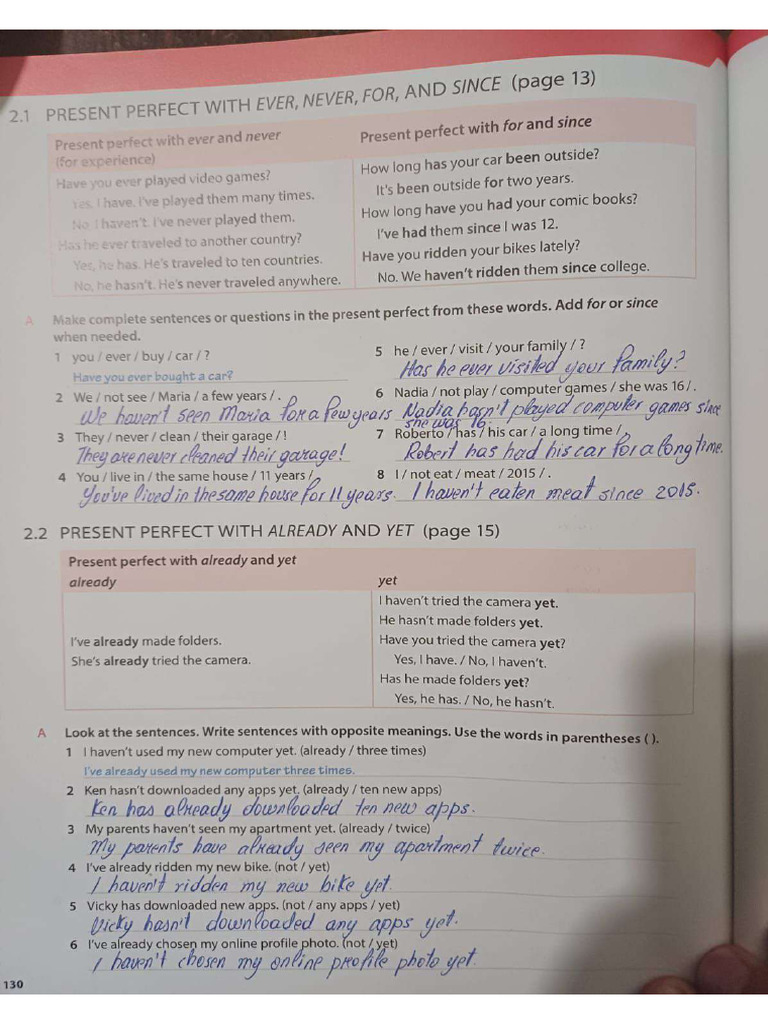 2.1 PRESENT PERFECT WITH EVER, NEVER, FOR, AND SINCE (page 13)
Present perfect with ever and never
(for experience)
Have you ever played video games?
Yes, I have. I've played them many times.
No, I haven't. I've never played them.
Has he ever traveled to another country?
Yes, he has. He's traveled to ten countries.
No, he hasn't. He's never traveled anywhere.
Present perfect with for and since
How long has your car been outside?
It's been outside for two years.
How long have you had your comic books?
I've had them since I was 12.
Have you ridden your bikes lately?
No. We haven't ridden them since college.
A Make complete sentences or questions in the present perfect from these words. Add for or since
when needed.
1 you / ever / buy / car / ?
Have you ever bought a car?
2 We / not see / Maria / a few years / .
We haven't seen Maria for a few years
3 They / never / clean / their garage / !
They are never cleaned their garage!
4 You / live in / the same house / 11 years / .
You've lived in the same house for 11 years.
5 he / ever / visit / your family / ?
Has he ever visited your family?
6 Nadia / not play / computer games / she was 16 / .
Nadia hasn't played computer games since
she was 16.
7 Roberto / has / his car / a long time / .
Robert has had his car for a long time.
8 I / not eat / meat / 2015 / .
I haven't eaten meat since 2015.
2.2 PRESENT PERFECT WITH ALREADY AND YET (page 15)
Present perfect with already and yet
already
I've already made folders.
She's already tried the camera.
yet
I haven't tried the camera yet.
He hasn't made folders yet.
Have you tried the camera yet?
Yes, I have. / No, I haven't.
Has he made folders yet?
Yes, he has. / No, he hasn't.
A Look at the sentences. Write sentences with opposite meanings. Use the words in parentheses ( ).
1 I haven't used my new computer yet. (already / three times)
I've already used my new computer three times.
2 Ken hasn't downloaded any apps yet. (already / ten new apps)
Ken has already downloaded ten new apps.
3 My parents haven't seen my apartment yet. (already / twice)
My parents have already seen my apartment twice.
4 I've already ridden my new bike. (not / yet)
I haven't ridden my new bike yet.
5 Vicky has downloaded new apps. (not / any apps / yet)
Vicky hasn't downloaded any apps yet.
6 I've already chosen my online profile photo. (not / yet)
I haven't chosen my online profile photo yet.
130